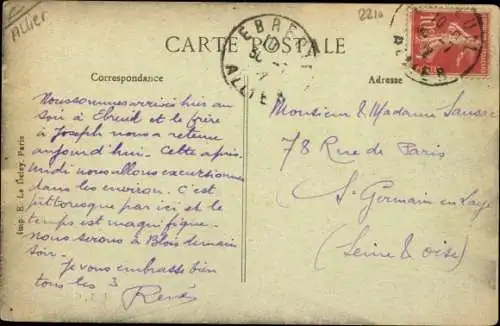 Allier
2210
EBREUIL
ALLIER
CARTE POSTALE
ALLIER
10
Correspondance
Adresse
Nous sommes arrivés hier au
soir à Ebreuil et le frère
à Joseph nous a retenu
aujourd'hui. Cette après-
midi nous allons excursionner
dans les environ. C'est
pittoresque par ici et le
temps est magnifique.
nous serons à Blois demain
soir.
Je vous embrasse bien
tous les 3
René
Monsieur & Madame
78 Rue de Paris
St Germain en Laye
(Seine & oise)
Imp. E. Le Deley, Paris